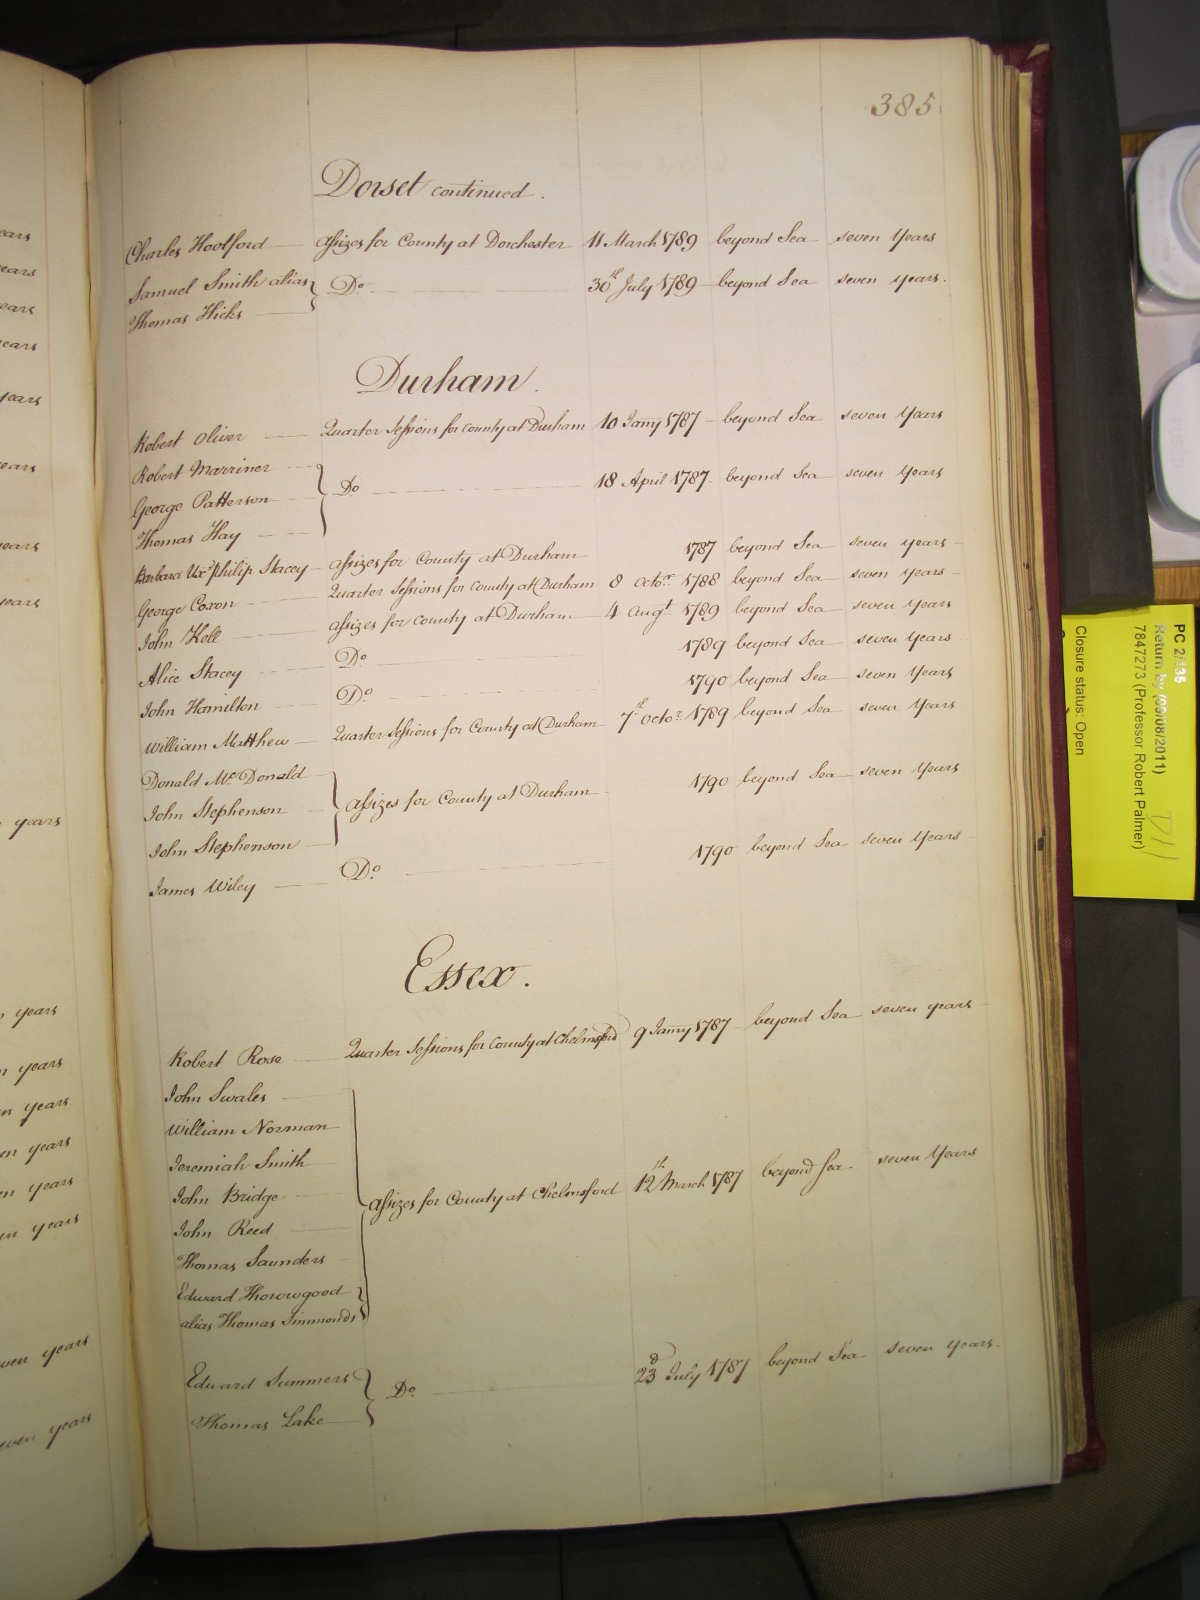 385
Dorset continued.
Charles Hootford Assizes for County at Dorchester 11 March 1789 beyond Sea seven Years
Samuel Smith alias Do 30th July 1789 beyond Sea seven years.
Thomas Hicks
Durham.
Robert Oliver Quarter Sessions for County at Durham 10 Janry 1787 beyond Sea seven Years
Robert Marriner
George Patterson Do 18 April 1787 beyond Sea seven Years
Thomas Hay
Barbara Uxr Philip Stacey Assizes for County at Durham 1787 beyond Sea seven years
George Coxon Quarter Sessions for County at Durham 8 Octor 1788 beyond Sea seven years
John Kell Assizes for County at Durham 4 Augt 1789 beyond Sea seven Years
Alice Stacey Do 1789 beyond Sea seven Years
John Hamilton Do 1790 beyond Sea seven Years
William Matthew Quarter Sessions for County at Durham 7th Octor 1789 beyond Sea seven Years
Donald McDonald
John Stephenson Assizes for County at Durham 1790 beyond Sea seven Years
John Stephenson
James Wiley Do 1790 beyond Sea seven Years
Essex.
Robert Rose Quarter Sessions for County at Chelmsford 9 Janry 1787 beyond Sea seven years
John Swales
William Norman
Jeremiah Smith
John Bridge Assizes for County at Chelmsford 12th March 1787 beyond Sea seven Years
John Reed
Thomas Saunders
Edward Thorowgood
alias Thomas Simmonds
Edward Summers Do 23d July 1787 beyond Sea seven years.
Thomas Lake
PC 2/135
Return by (09/08/2011)
7847273 (Professor Robert Palmer)
Closure status: Open